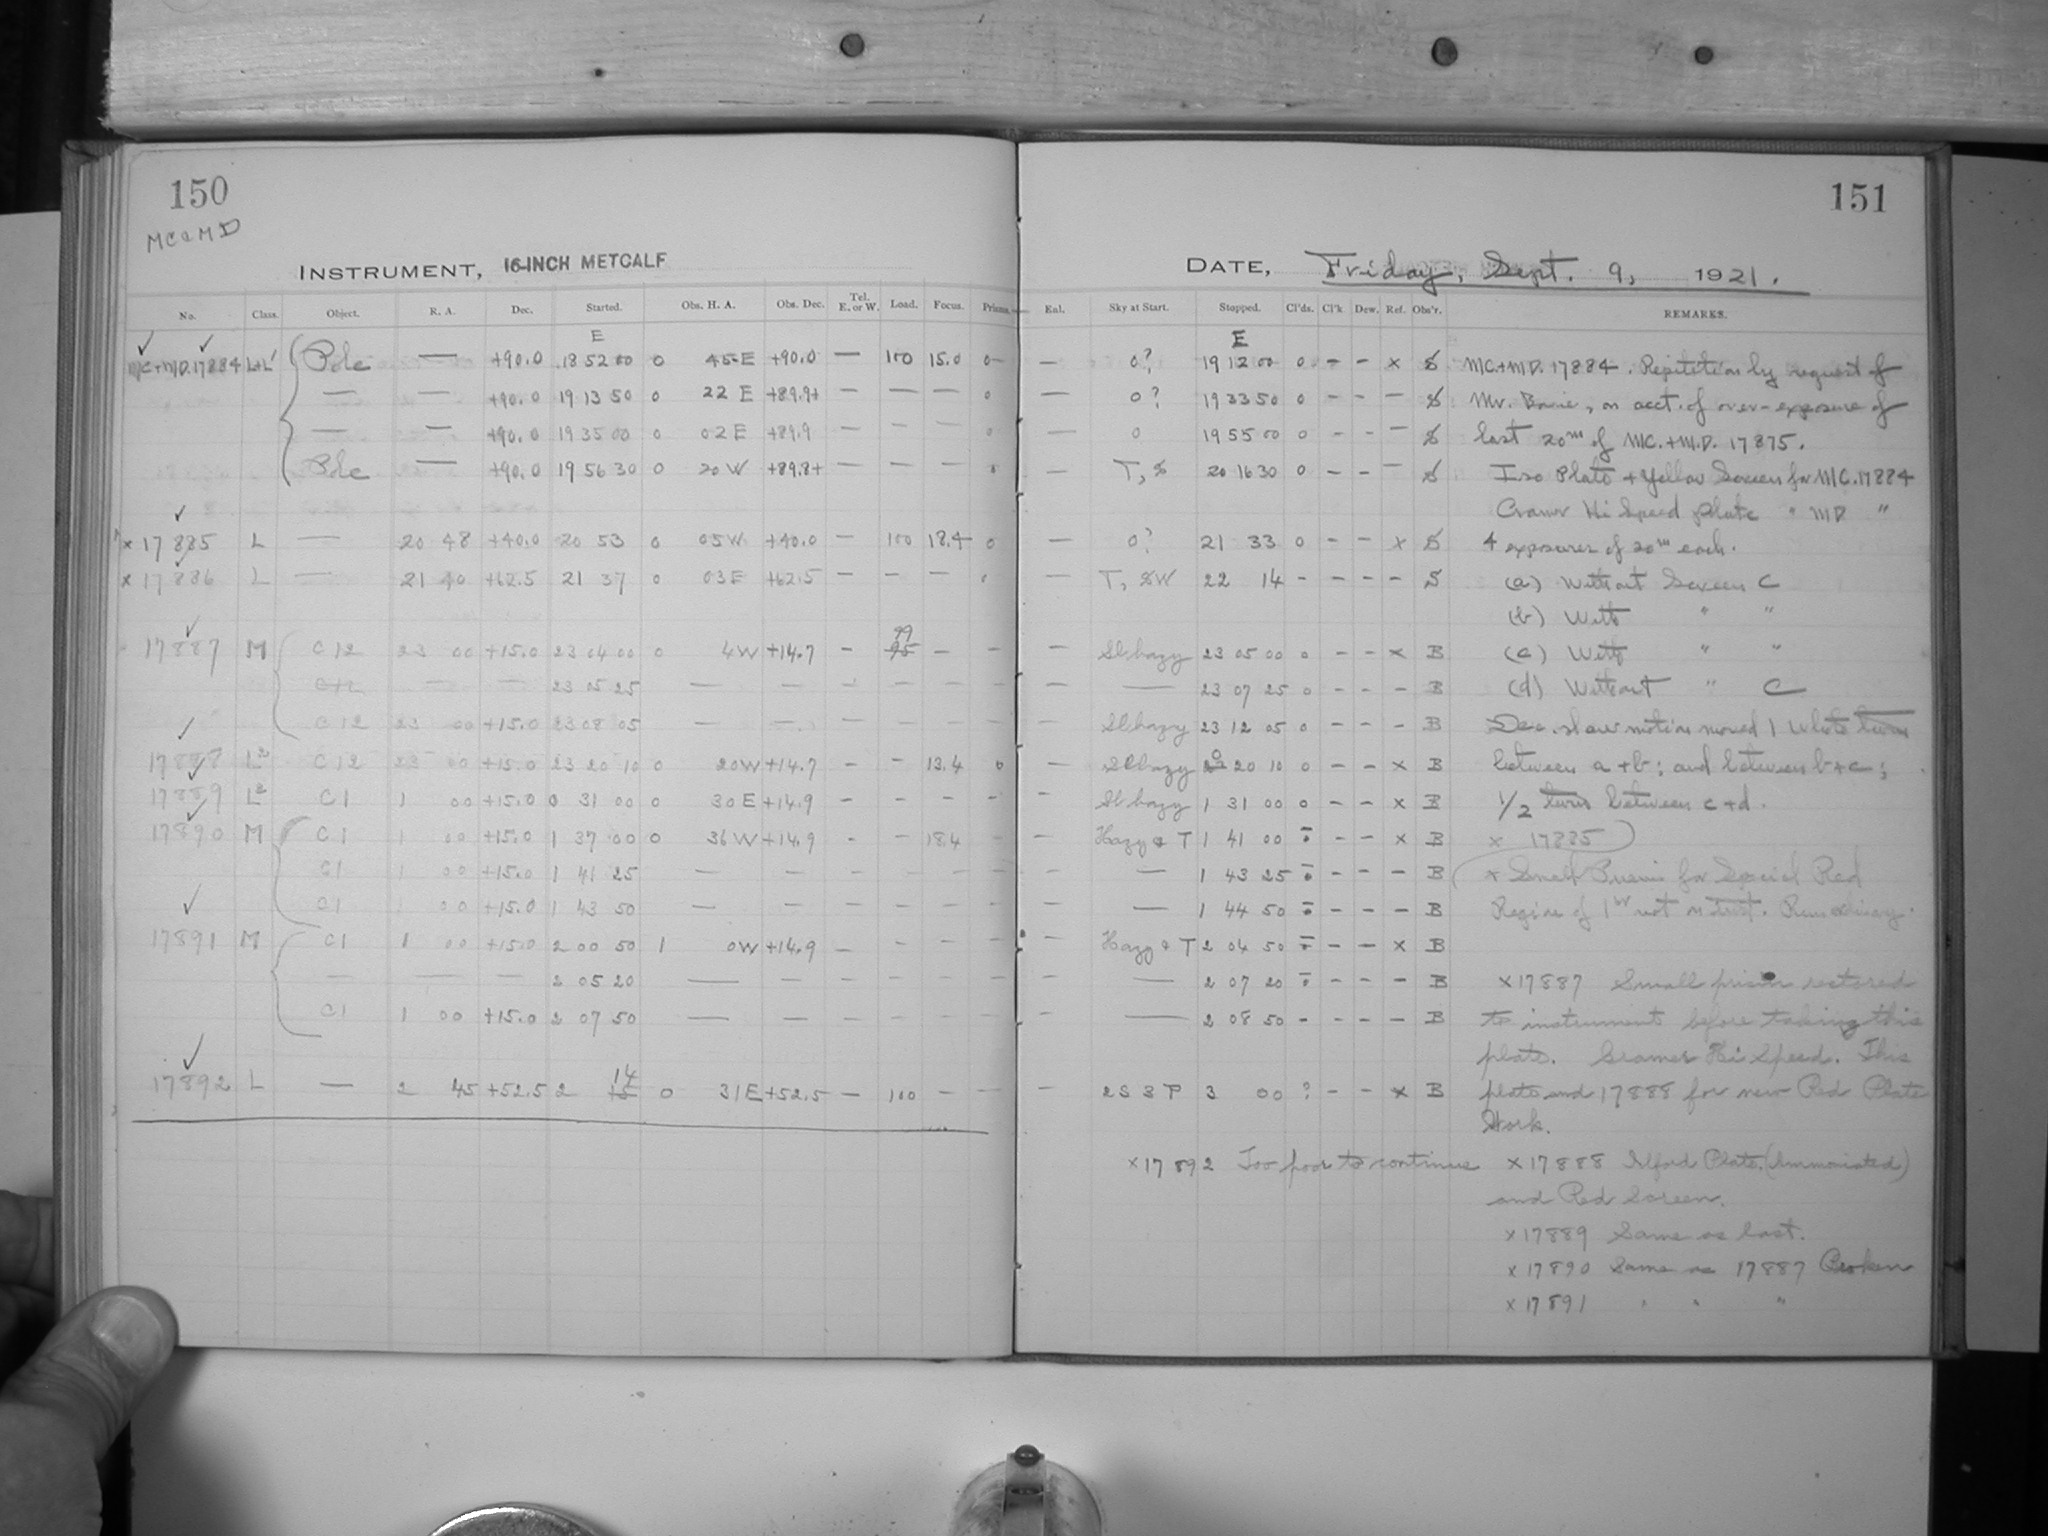 150
MC & MD
INSTRUMENT, 16-INCH METCALF
No. Class. Object. R. A. Dec. Started. Obs. H. A. Obs. Dec. Tel. E. or W. Load. Focus. Prisms.
E
MC+MD.17884 L+L' Pole — +90.0 18 52 00 0 45 E +90.0 — 100 15.0 0
— — +90.0 19 13 50 0 22 E +89.9+ — — — 0
— — +90.0 19 35 00 0 02 E +89.9 — — — 0
Pole — +90.0 19 56 30 0 20 W +89.8+ — — —
x 17885 L — 20 48 +40.0 20 53 0 05 W +40.0 — 100 18.4 0
x 17886 L — 21 40 +62.5 21 37 0 03 E +62.5 — — —
99
17887 M C 12 23 00 +15.0 23 04 00 0 4 W +14.7 — 95 — —
C 12 — — 23 05 25 — — — — — —
C 12 23 00 +15.0 23 08 05 — — — — — —
17888 L2 C 12 23 00 +15.0 23 20 10 0 20 W +14.7 — — 13.4 0
17889 L2 C 1 1 00 +15.0 0 31 00 0 30 E +14.9 — — — —
17890 M C 1 1 00 +15.0 1 37 00 0 36 W +14.9 — — 18.4 —
C 1 1 00 +15.0 1 41 25 — — — — — —
C 1 1 00 +15.0 1 43 50 — — — — — —
17891 M C 1 1 00 +15.0 2 00 50 1 0 W +14.9 — — — —
— — — 2 05 20 — — — — — —
C 1 1 00 +15.0 2 07 50 — — — — — —
14
17892 L — 2 45 +52.5 2 15 0 31 E +52.5 — 100 — —
151
DATE, Friday, Sept. 9, 1921.
Enl. Sky at Start. Stopped. Cl'ds. Cl'k Dew. Ref. Obs'r. REMARKS.
E
— 0? 19 12 00 0 — — x S MC.+MD. 17884. Repitition by request of
— 0? 19 33 50 0 — — — S Mr. , on acct. of over-exposure of
— 0 19 55 00 0 — — — S last 20m of MC.+M.D. 17875.
— T, S 20 16 30 0 — — — S Iso Plate + Yellow Screen for MC.17884
Cramer Hi Speed plate " MD "
— 0? 21 33 0 — — x S 4 exposures of 20m each.
— T, SW 22 14 — — — — S (a) Without Screen C
(b) With " "
— Sl hazy 23 05 00 0 — — x B (c) With " "
— — 23 07 25 0 — — — B (d) Without " C
Sl hazy 23 12 05 0 — — — B Dec. slow motion moved 1 whole turn
— Sl hazy 0 20 10 0 — — x B between a + b; and between b + c;
— Sl hazy 1 31 00 0 — — x B 1/2 turn between c + d.
— Hazy & T 1 41 00 — — x B x 17885
— — 1 43 25 — — — B x Small Prism for Special Red
— — 1 44 50 — — — B Region of 1st not in Inst. Run ordinary.
— Hazy & T 2 04 50 — — x B
— — 2 07 20 — — — B x 17887 Small prism restored
— — 2 08 50 — — — — B to instrument before taking this
plate. Cramer Hi Speed. This
— 2 S 3 P 3 00 ? — — x B plate and 17888 for new Red Plate
Work.
x 17892 Too poor to continue x 17888 Ilford Plate. (Ammoniated)
and Red Screen.
x 17889 Same as last.
x 17890 Same as 17887 Broken
x 17891 " " "